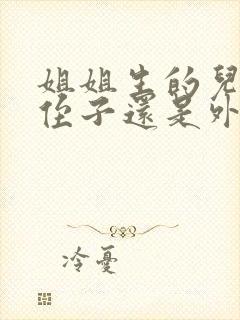 姐姐生的兒
侄子還是外
冷憂